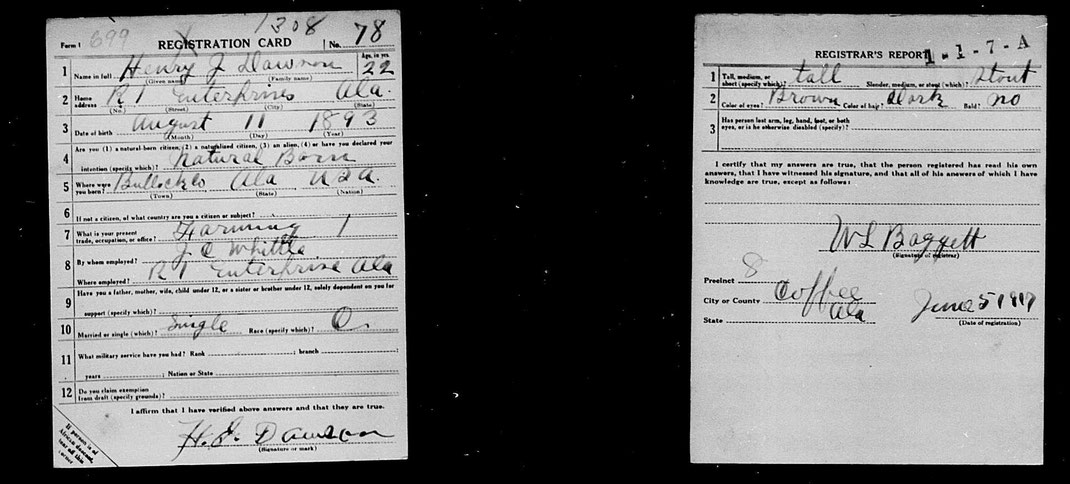 1308
Form 1 699 REGISTRATION CARD No. 78
1 Name in full Henry J Dawson Age, in yrs. 22
(Given name) (Family name)
2 Home address R 1 Enterprise Ala.
(No.) (Street) (City) (State)
3 Date of birth August 11 1893
(Month) (Day) (Year)
4 Are you (1) a natural-born citizen, (2) a naturalized citizen, (3) an alien, (4) or have you declared your
intention (specify which)? Natural Born
5 Where were you born? Bullock Co Ala USA.
(Town) (State) (Nation)
6 If not a citizen, of what country are you a citizen or subject?
7 What is your present trade, occupation, or office? Farming 1
8 By whom employed? J C Whittle
Where employed? R 1 Enterprise Ala
9 Have you a father, mother, wife, child under 12, or a sister or brother under 12, solely dependent on you for
support (specify which)?
10 Married or single (which)? Single Race (specify which)? C
11 What military service have you had? Rank ; branch ;
years ; Nation or State
12 Do you claim exemption
from draft (specify grounds)?
I affirm that I have verified above answers and that they are true.
H. J. Dawson
(Signature or mark)
If person is of
African descent,
tear off this
corner
REGISTRAR'S REPORT 1-1-7-A
1 Tall, medium, or short (specify which)? tall Slender, medium, or stout (which)? Stout
2 Color of eyes? Brown Color of hair? Dark Bald? no
3 Has person lost arm, leg, hand, foot, or both
eyes, or is he otherwise disabled (specify)?
I certify that my answers are true, that the person registered has read his own
answers, that I have witnessed his signature, and that all of his answers of which I have
knowledge are true, except as follows:
W L Baggett
(Signature of registrar)
Precinct 8
City or County Coffee
State Ala
June 5 1917
(Date of registration)